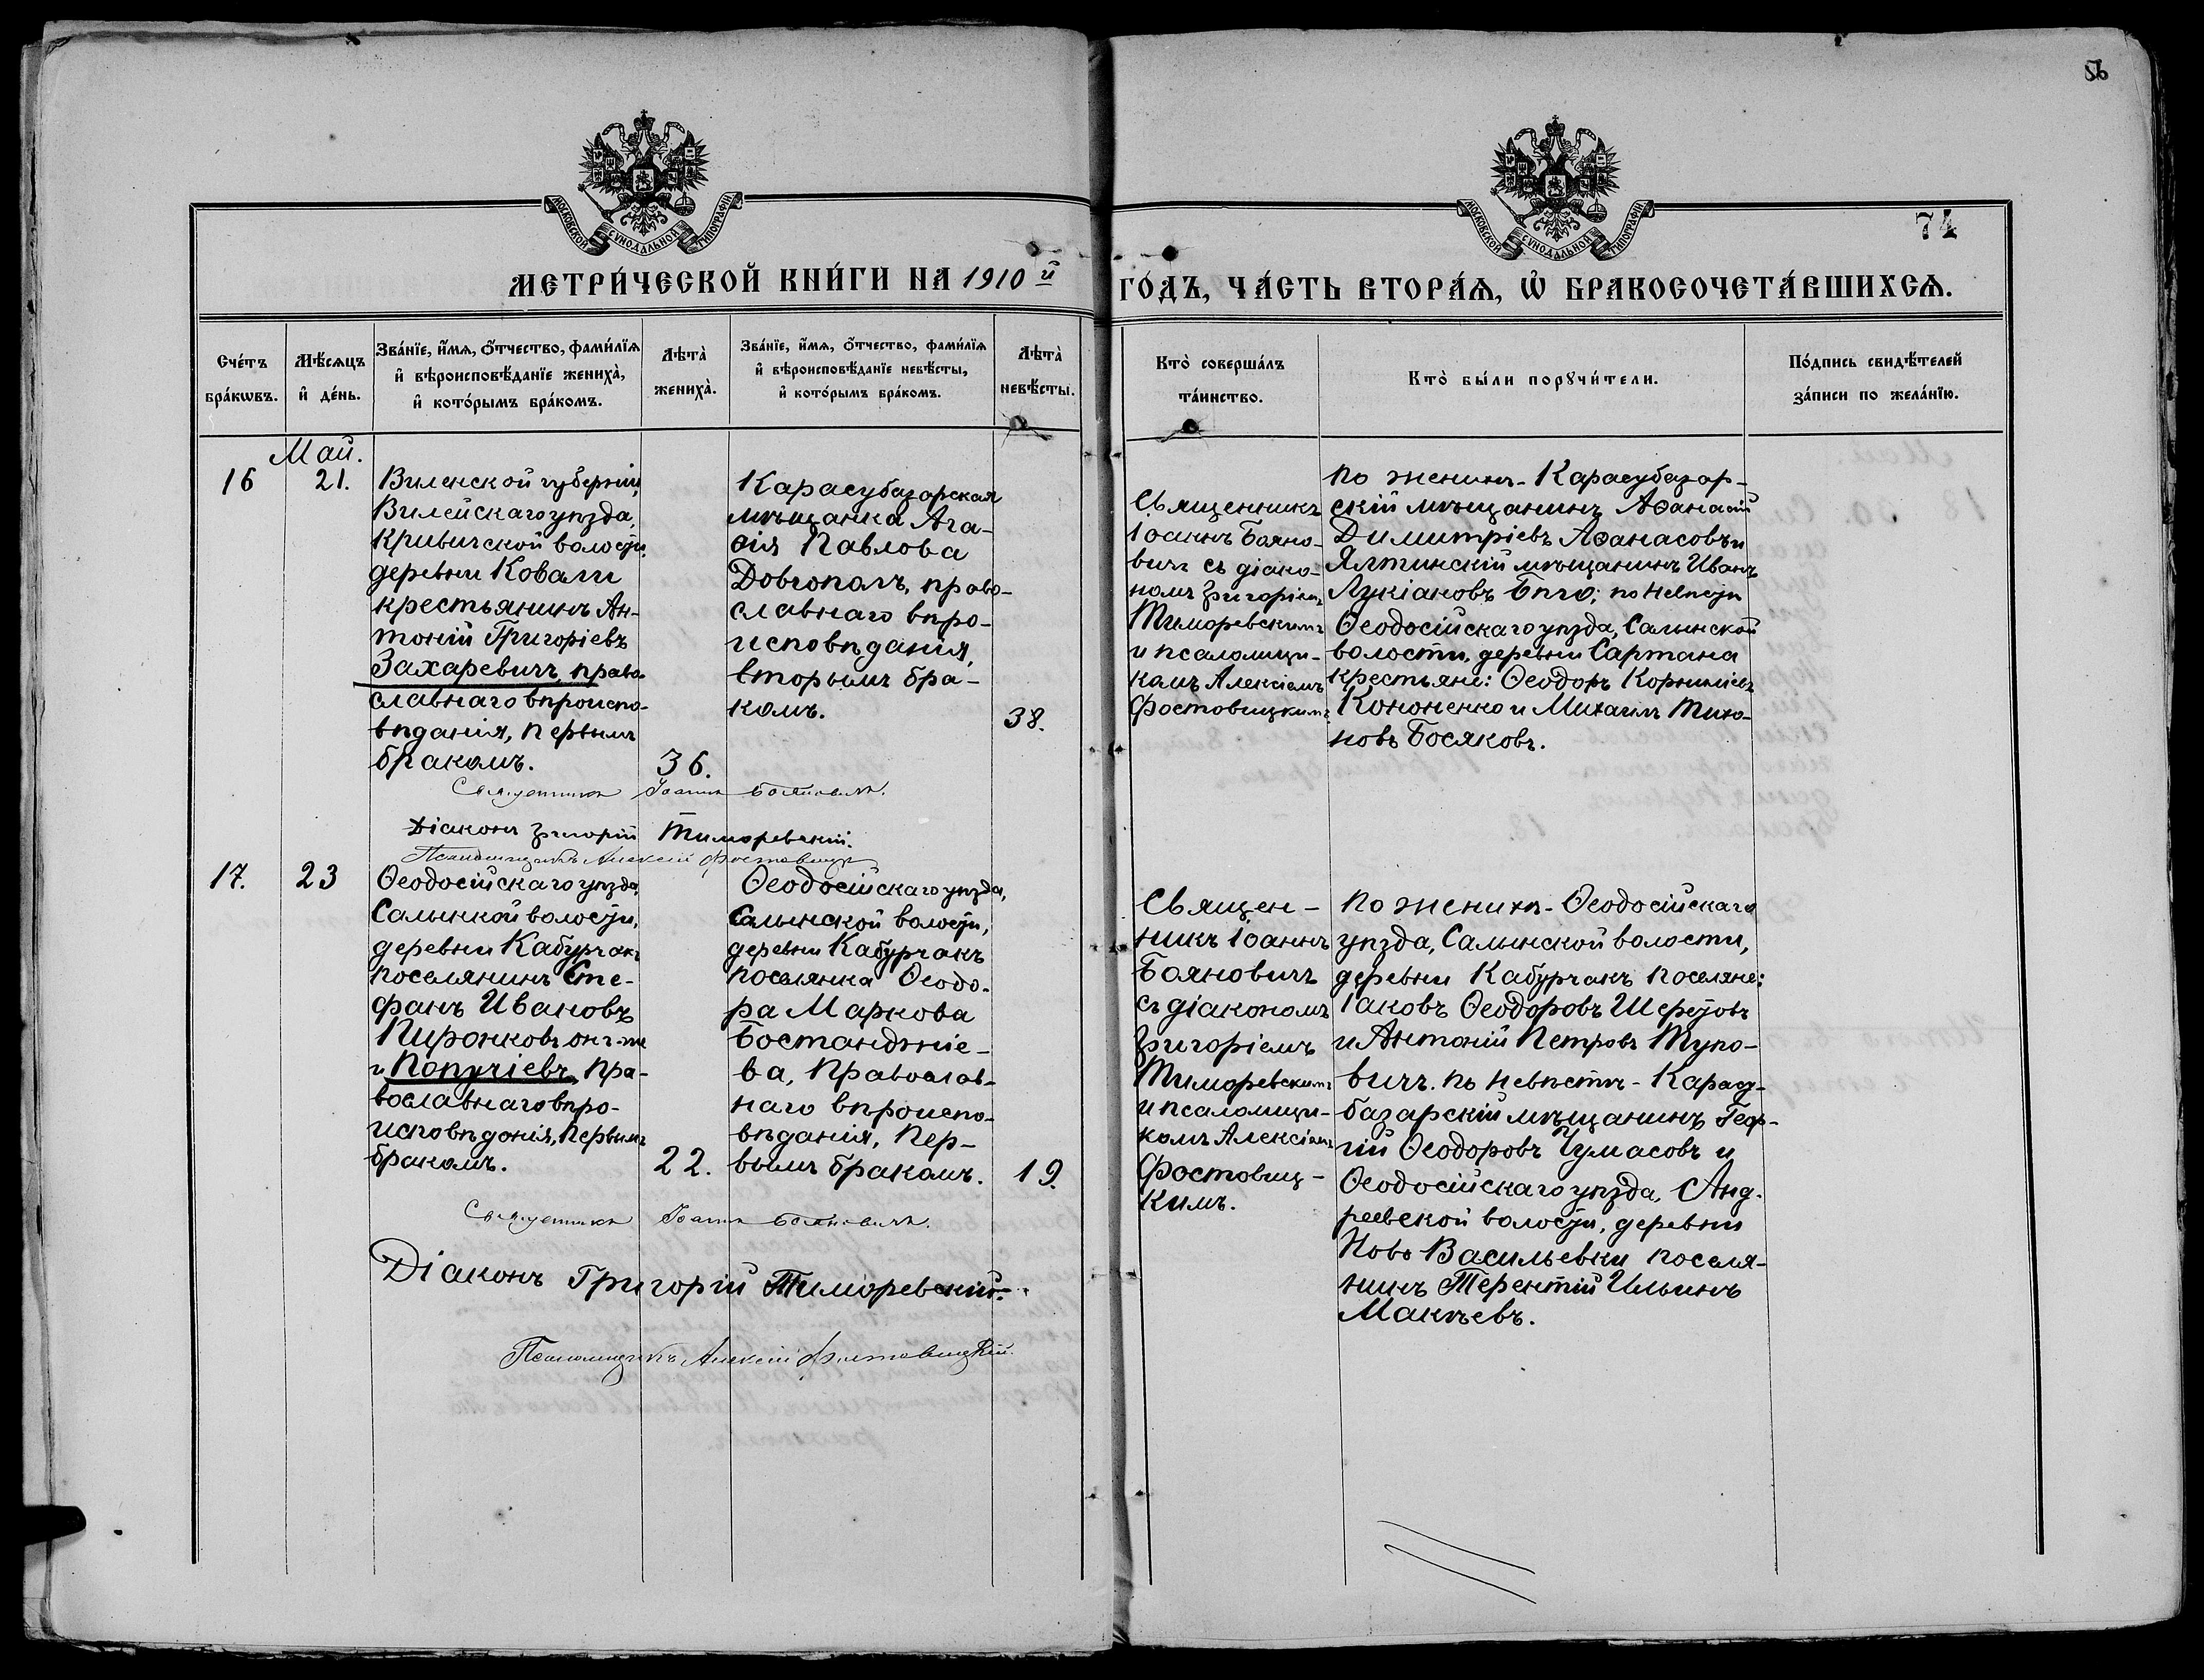 56
МОСКОВСКОЙ СѴНОДАЛЬНОЙ ТИПОГРАФІИ
МОСКОВСКОЙ СѴНОДАЛЬНОЙ ТИПОГРАФІИ
74
МЕТРИ́ЧЕСКОЙ КНИ́ГИ НА 1910й ГО́ДЪ, ЧА́СТЬ ВТОРА́Ѧ, Ѡ҆ БРАКОСОЧЕТА́ВШИХСѦ.
Сче́тъ
бра́кѡвъ.
Мѣ́сѧцъ
и҆ де́нь.
Зва́нїе, и҆́мѧ, ѻ҆́тчество, фами́лїѧ
и҆ вѣроисповѣ́данїе жениха̀,
и҆ кото́рымъ бра́комъ.
Лѣта̀
жениха̀.
Зва́нїе, и҆́мѧ, ѻ҆́тчество, фами́лїѧ
и҆ вѣроисповѣ́данїе невѣ́сты,
и҆ кото́рымъ бра́комъ.
Лѣта̀
невѣ́сты.
Кто̀ соверша́лъ
та́инство.
Кто̀ бы́ли порꙋчи́тели.
По́дпись свидѣ́телей
за́писи по жела́нїю.
Май.
16
21.
Виленской губерніи,
Вилейскаго уѣзда,
Кривичской волости
деревни Ковали
крестьянинъ Ан-
тоній Григоріевъ
Захаревичъ, право-
славнаго вѣроиспо-
вѣданія, первымъ
бракомъ.
36.
Карасубазарская
мѣщанка Ага-
ѳія Павлова
Довгополъ, право-
славнаго вѣро-
исповѣданія,
вторымъ бра-
комъ.
38.
Священникъ
Іоаннъ Бояно-
вичъ съ діако-
номъ Григоріемъ
Тиморевскимъ
и псаломщи-
комъ Алексіемъ
Фостовицкимъ
по женихѣ - Карасубазар-
скій мѣщанинъ Аѳанасій
Димитріевъ Аѳанасовъ и
Ялтинскій мѣщанинъ Иванъ
Лукіановъ Бѣго; по невѣстѣ
Ѳеодосійскаго уѣзда, Салынской
волости, деревни Сартана
крестьяне: Ѳеодоръ Корниліевъ
Кононенко и Михаилъ Тихо-
новъ Босяковъ.
Священникъ Іоаннъ Бояновичъ.
Діаконъ Григорій Тиморевскій.
Псаломщикъ Алексій Фостовицкій
17.
23
Ѳеодосійскаго уѣзда,
Салынкой волости,
деревни Кабурчакъ
поселянинъ Сте-
фанъ Ивановъ
Пиронковъ онъ-же
и Попучіевъ, пра-
вославнаго вѣро-
исповѣданія, первымъ
бракомъ.
22.
Ѳеодосійскаго уѣзда,
Салынской волости,
деревни Кабурчакъ
поселянка Ѳеодо-
ра Маркова
Бостанджіе-
ва, православ-
наго вѣроиспо-
вѣданія, пер-
вымъ бракомъ.
19.
Священ-
никъ Іоаннъ
Бояновичъ
съ діакономъ
Григоріемъ
Тиморевскимъ
и псаломщи-
комъ Алексіемъ
Фостовиц-
кимъ.
по женихѣ - Ѳеодосійскаго
уѣзда, Салынской волости,
деревни Кабурчакъ поселяне:
Іаковъ Ѳеодоровъ Шеретовъ
и Антоній Петровъ Тупо-
вичъ. по невѣстѣ - Карасу-
базарскій мѣщанинъ Геор-
гій Ѳеодоровъ Чумасовъ и
Ѳеодосійскаго уѣзда, Анд-
реевской волости, деревни
Ново Васильевки поселя-
нинъ Терентій Ильинъ
Макѣевъ.
Священникъ Іоаннъ Бояновичъ.
Діаконъ Григорій Тиморевскій.
Псаломщикъ Алексій Фостовицкій.